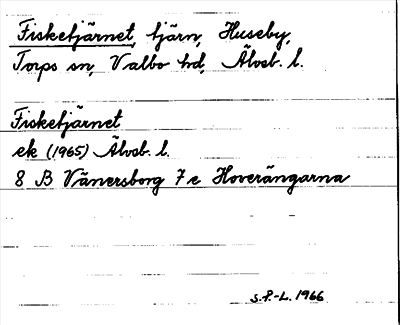 Fisketjärnet, tjärn, Huseby,
Torps sn, Valbo hd, Älvsb. l.
Fisketjärnet
ek (1965) Älvsb. l.
8 B Vänersborg 7 e Hoverängarna
S.F.-L. 1966